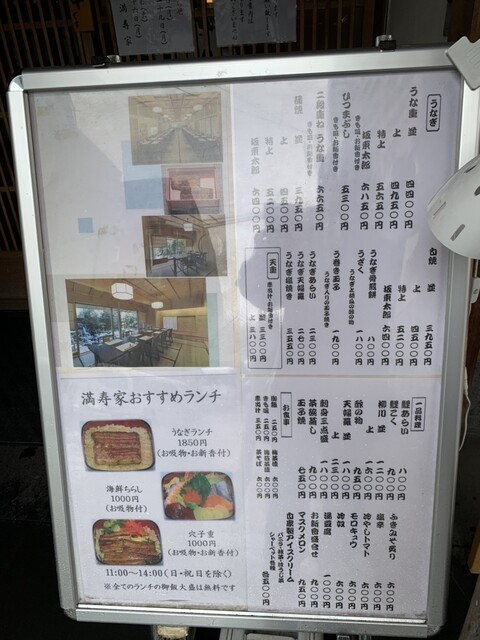 うなぎ
うな重 並 四四〇〇円
上 四九五〇円
特上 五六五〇円
坂東太郎 六八五〇円
ひつまぶし 五三〇〇円
きも吸・お新香付き
二段重ねうな重 六六五〇円
きも吸・お新香付き
蒲焼 並 三九五〇円
上 四五〇〇円
特上 五二〇〇円
坂東太郎 六四〇〇円
白焼 並 三九五〇円
上 四五〇〇円
特上 五二〇〇円
坂東太郎 六四〇〇円
うなぎ骨煎餅 八〇〇円
うざく 一八〇〇円
うなぎと胡瓜の酢の物
う巻き玉子 一九〇〇円
うなぎ入りの玉子焼き
うなぎあらい 二三〇〇円
うなぎ天婦羅 二七〇〇円
うなぎ塩焼き 三五五〇円
天重
赤出汁・お新香付き
並 三三〇〇円
上 三八〇〇円
一品料理
鯉あらい 一八〇〇円
鯉こく 九〇〇円
柳川 並 一二〇〇円
上 一六〇〇円
酢の物 九五〇円
天婦羅 並
上
刺身三点盛 一八〇〇円
茶碗蒸し 九〇〇円
玉子焼 七五〇円
お食事
御飯 二五〇円
きも吸 三五〇円
赤出汁 三五〇円
梅茶漬
茶そば
ふきみそ炙り 六〇〇円
塩辛 六〇〇円
冷やしトマト 六〇〇円
モロキュウ 六〇〇円
冷奴 六〇〇円
湯豆腐 一〇〇〇円
お新香盛合せ 九〇〇円
マスクメロン 九五〇円
自家製アイスクリーム
シャーベット各種 各五〇〇円
満寿家おすすめランチ
うなぎランチ
1850円
(お吸物・お新香付)
海鮮ちらし
1000円
(お吸物付)
穴子重
1000円
(お吸物・お新香付)
11:00〜14:00 (日・祝日を除く)
※全てのランチの御飯大盛は無料です